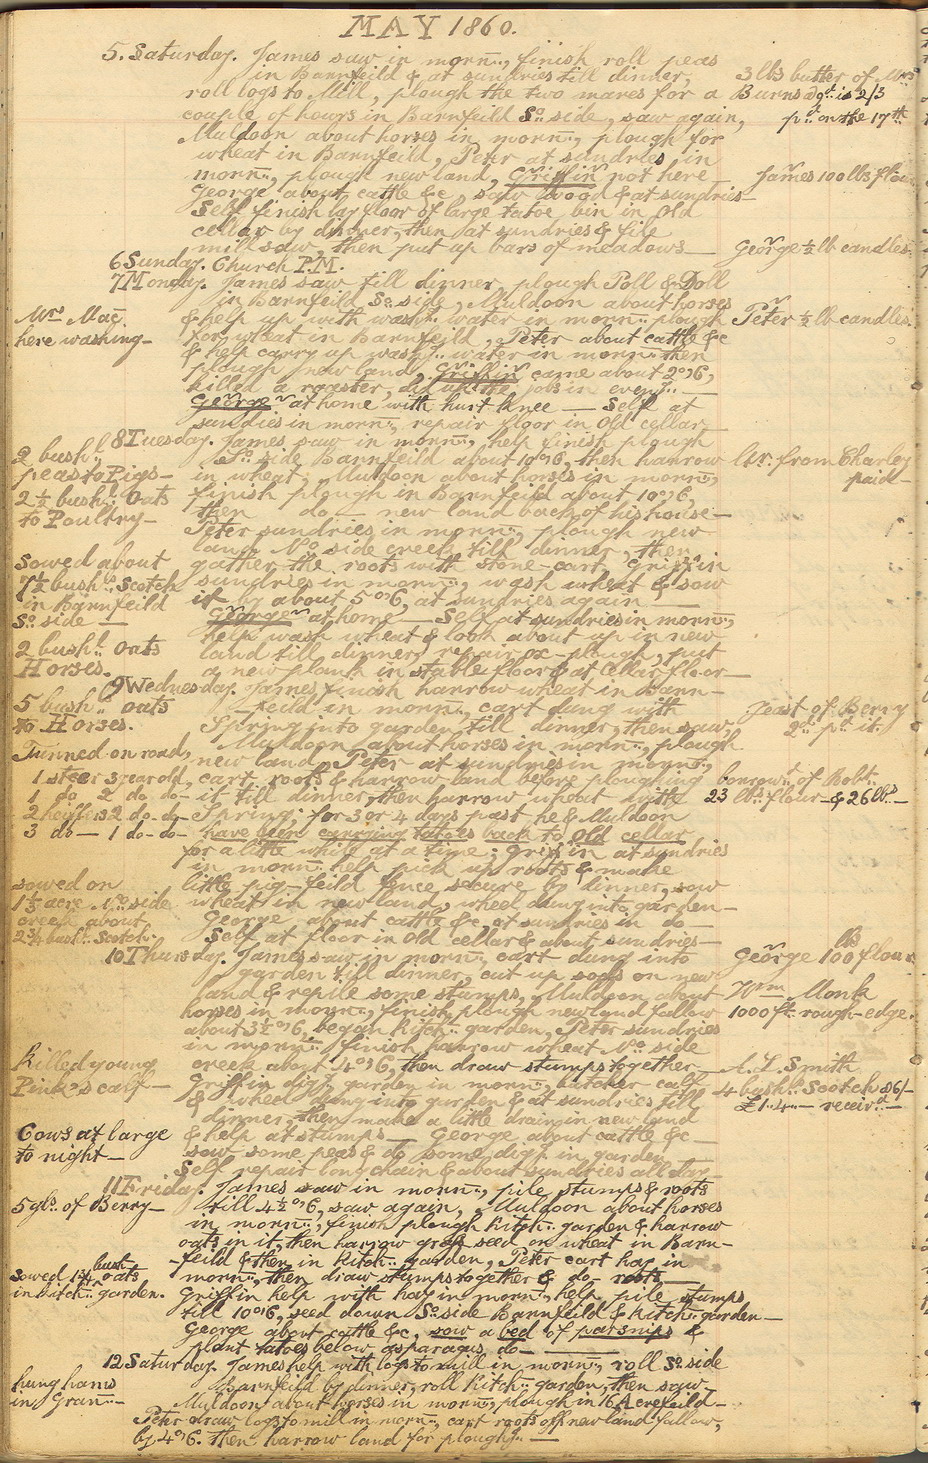 MAY 1860.
5. Saturday. James saw in morn:, finish roll peas
in Barnfeild & at sundries till dinner,
3 lbs butter of Mrs
roll logs to Mill, plough the two mares for a
Burns @ 9d is 2/3
couple of hours in Barnfeild So side, saw again,
pd on the 17th
Muldoon about horses in morn:, plough for
wheat in Barnfeild, Peter at sundries in
morn:, plough new land, Griffin not here
James 100 lbs flour
George about cattle &c, saw wood & at sundries
Self finish lay floor of large tatoe bin in Old
cellar by dinner, then at sundries & file
mill saw, then put up bars of meadows
George ½ lb candles
6 Sunday. Church P.M.
7 Monday. James saw till dinner, plough Poll & Doll
in Barnfeild So side, Muldoon about horses
Mrs May
here washing
& help up with wash: water in morn: plough
Peter ½ lb candles
for wheat in Barnfeild, Peter about cattle &c
& help carry up wash: water in morn: then
plough new land, Griffin came about 2 o'6,
killed a rooster, did up the jobs in even:
George at home with hurt knee — Self at
sundies in morn:, repair floor in Old cellar
8 Tuesday. James saw in morn:, help finish plough
2 bushl
peas to Pigs
So side Barnfeild about 10 o'6, then harrow
Ur. from Charley
paid
in wheat, Muldoon about horses in morn:,
2½ bushl Oats
to Poultry
finish plough in Barnfeild about 10 o'6,
then — do — new land back of his house
Peter sundries in morn:, plough new
land No side creek till dinner, then
Sowed about
7½ bushls Scotch
in Barnfeild
So side
gather the roots with stone-cart, Griffin
sundries in morn:, wash wheat & sow
it by about 5 o'6, at sundries again
George at home — Self at sundries in morn:,
help wash wheat & look about up in new
2 bushl Oats
Horses.
land till dinner, repair ox-plough, put
a new plank in stable floor & at Cellar floor
9 Wednesday. James finish harrow wheat in Barn-
5 bushls Oats
to Horses.
feild in morn:, cart dung with
Yeast of Berry
2d pd it.
Spring into garden till dinner, then saw,
Turned on road,
Muldoon about horses in morn:, plough
new land, Peter at sundries in morn:,
1 steer 3 year old,
cart roots & harrow land before ploughing
borrowd of Robt
1 do 2 do do
it till dinner, then harrow wheat with
23 lbs flour & 26 lbs
2 heifers 2 do do
Spring; for 3 or 4 days past he & Muldoon
3 do — 1 do do
have been carrying tatoes back to Old cellar
for a little while at a time; Griffin at sundries
in morn: help pick up roots & make
sowed on
1⅓ acre No side
creek about
2¾ bushl Scotch
little pig-feild fence secure by dinner, sow
wheat in new land, wheel dung into garden
George about cattle &c, at sundries in do
Self at floor in Old cellar & about sundries
10 Thursday. James saw in morn:, cart dung into
George 100 lbs flour
garden till dinner, cut up sods on new
land & repile some stumps, Muldoon about
Wm Monk
horses in morn:, finish plough new land fallow
1000 ft rough-edge.
about 3½ o'6, began Kitch: garden, Peter sundries
in morn: finish harrow wheat No side
Killed young
Pink's calf
creek about 4 o'6, then draw stumps together
A. L. Smith
Griffin digg garden in morn:, butcher calf
4 bushls Scotch @ 6/-
& wheel dung into garden & at sundries till
£1..4..— receivd
dinner, then make a little drain in new land
Cows at large
to night
& help at stumps — George about cattle &c
sow some peas & do some digg in garden
Self repair long chain & about sundries all day
11 Friday. James saw in morn:, pile stumps & roots
5 gls of Berry
till 4½ o'6, saw again, Muldoon about horses
in morn:, finish plough Kitch: garden & harrow
oats in it, then harrow grass seed on wheat in Barn-
feild & then in Kitch: garden, Peter cart hay in
sowed 1¾ bush oats
in Kitch: garden.
morn:, then draw stumps together & do roots
Griffin help with hay in morn:, help pile stumps
till 10 o'6, seed down So side Barnfeild & Kitch: garden
George about cattle &c, sow a bed of parsnips &
plant tatoes below asparagus do
12 Saturday. James help with logs to mill in morn:, roll So side
hung hams
in Gran:
Barnfeild by dinner, roll Kitch: garden, then saw,
Muldoon about horses in morn:, plough in 16 Acre feild
Peter draw logs to mill in morn:, cart roots off new land fallow,
by 4 o'6. then harrow land for plough: